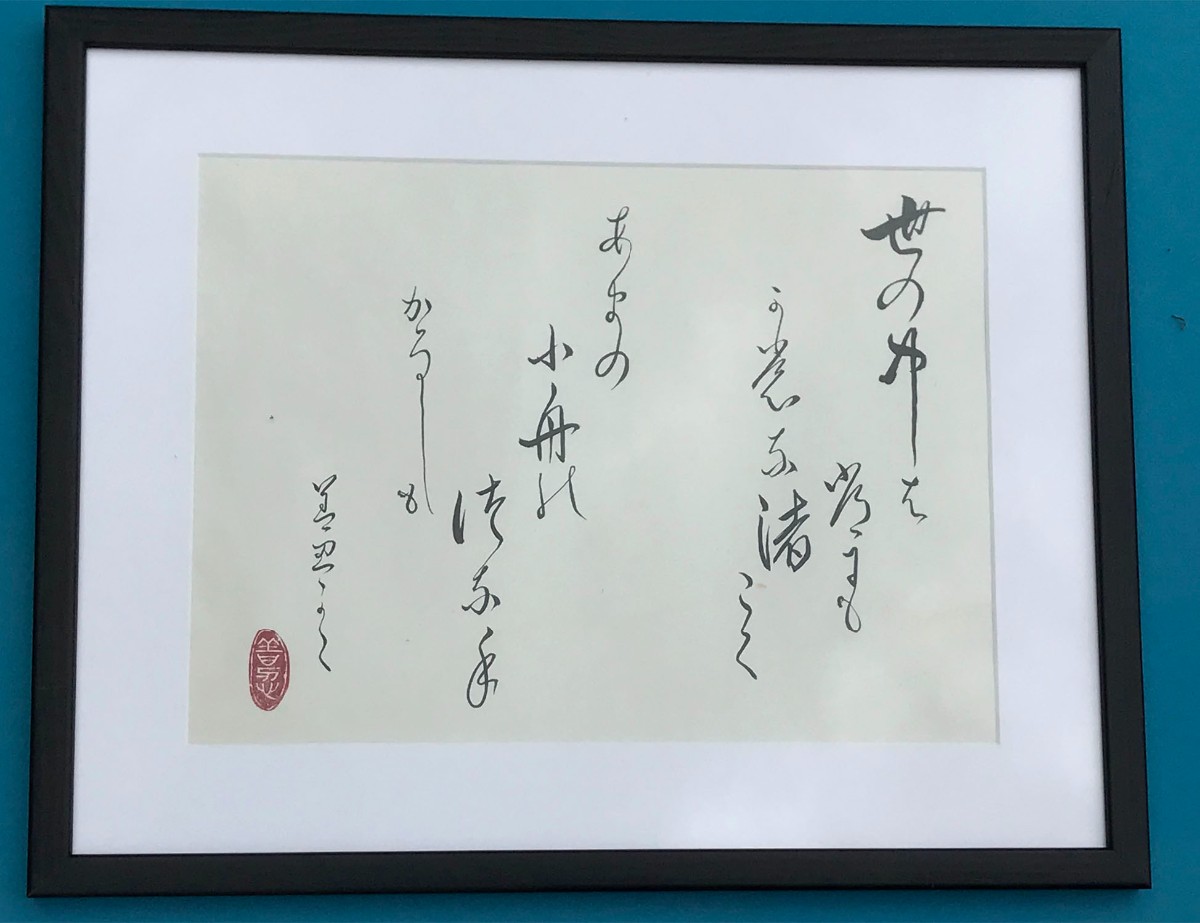 世の中は
常にも
可裳な渚こく
あまの
小舟の
津な手
かなしも